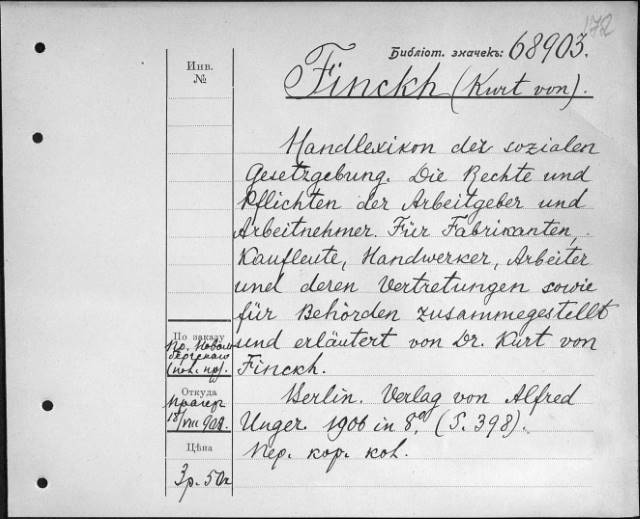 172
Библіот. значекъ: 68903.
Инв.
№
Finckh (Kurt von).
Handlexikon der sozialen
Gesetzgebung. Die Rechte und
Pflichten der Arbeitgeber und
Arbeitnehmer. Für Fabrikanten,
Kaufleute, Handwerker, Arbeiter
und deren Vertretungen sowie
für Behörden zusammengestellt
und erläutert von Dr. Kurt von
Finckh.
По заказу
Пр.
Откуда
Прагер
18/VIII 908.
Цѣна
3р. 50к
Berlin. Verlag von Alfred
Unger. 1906 in 8º (S. 398).
Пер. кор. кол.